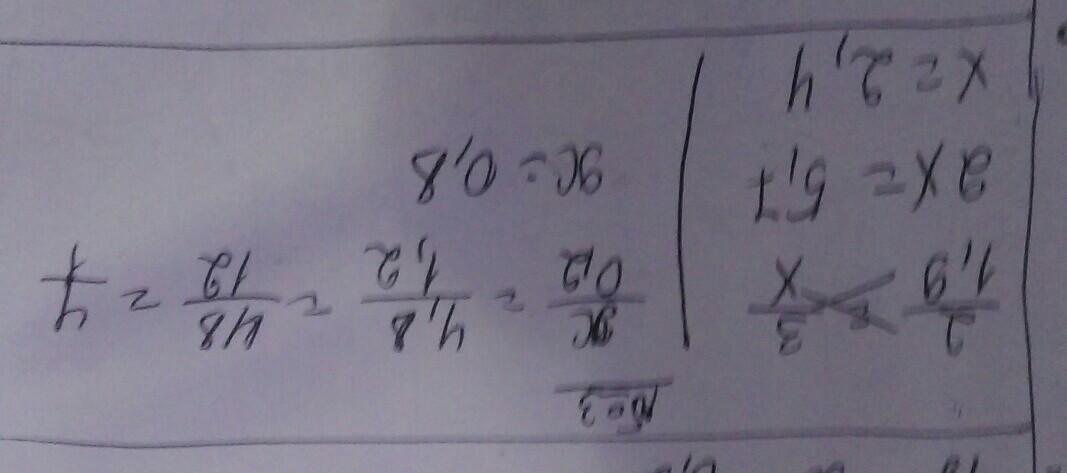 №3
2/1,9 = 3/x
2x = 5,7
x = 2,4
x/0,2 = 4,8/1,2 = 48/12 = 4/1
x = 0,8